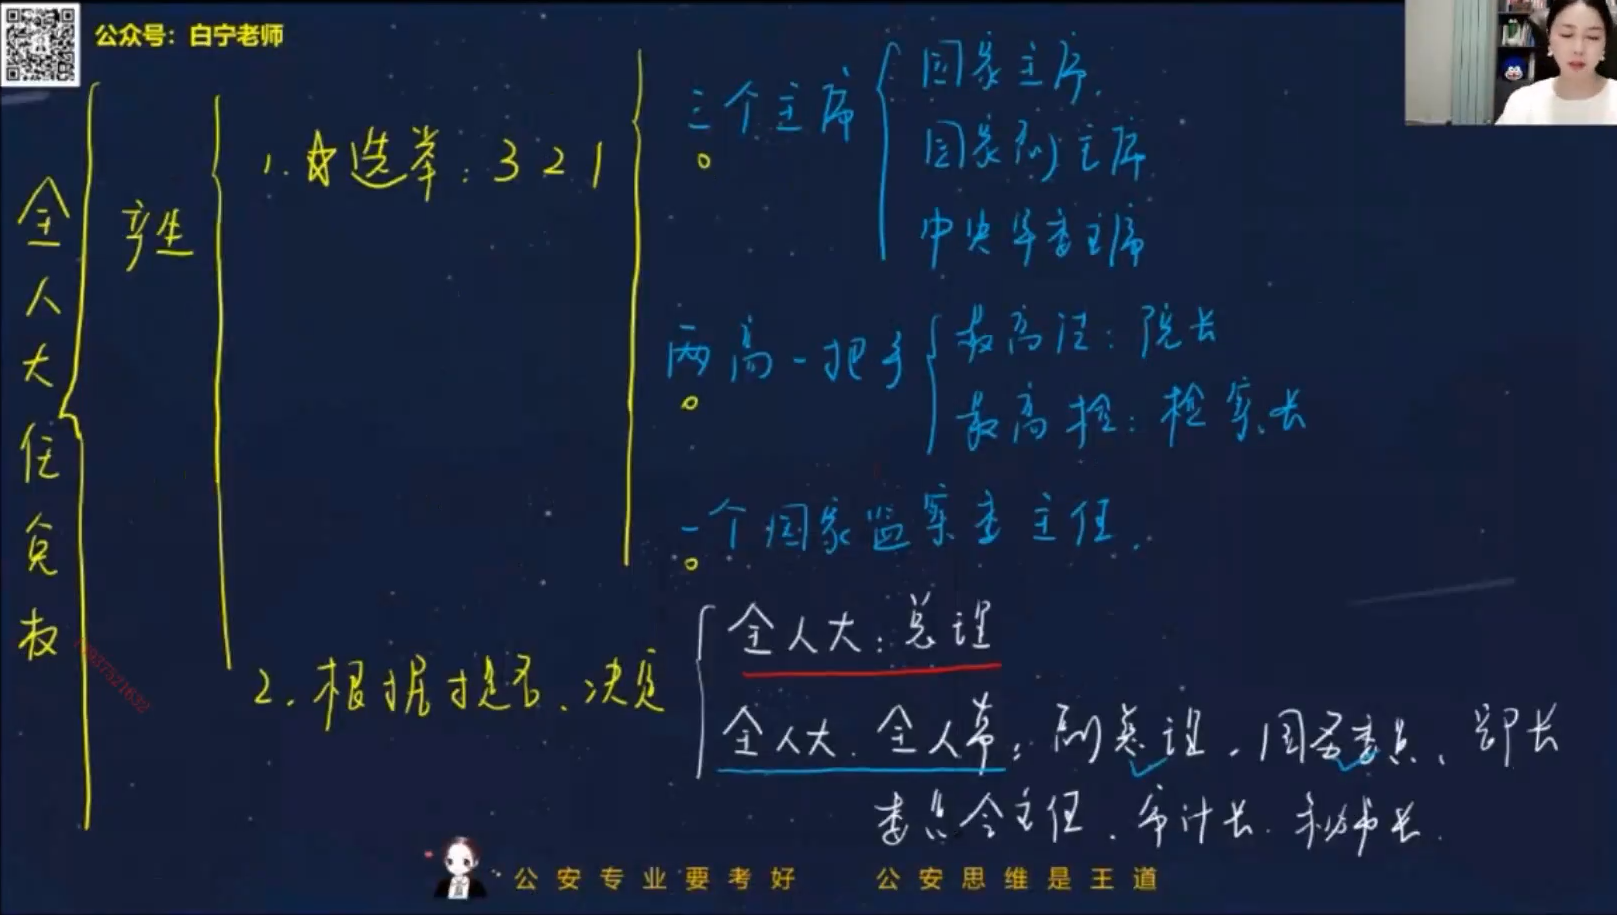 公众号：白宁老师
全人大任免权
产生
1.☆选举：321
三个主席
国家主席.
国家副主席
中央军委主席
两高一把手
最高法：院长
最高检：检察长
一个国家监察委主任.
2.根据提名、决定
全人大：总理
全人大.全人常：副总理.国务委员、部长
委员会主任.审计长.秘书长.
公安专业要考好 公安思维是王道